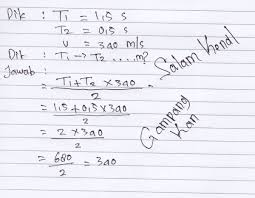 Dik : T1 = 1,5 s
T2 = 0,5 s
v = 340 m/s
Dit : T1 → T2 ..... m?
Jawab :
= T1 + T2 x 340 / 2
= 1,5 + 0,5 x 340 / 2
= 2 x 340 / 2
= 680 / 2 = 340
Salam Kenal
Gampang
Kan